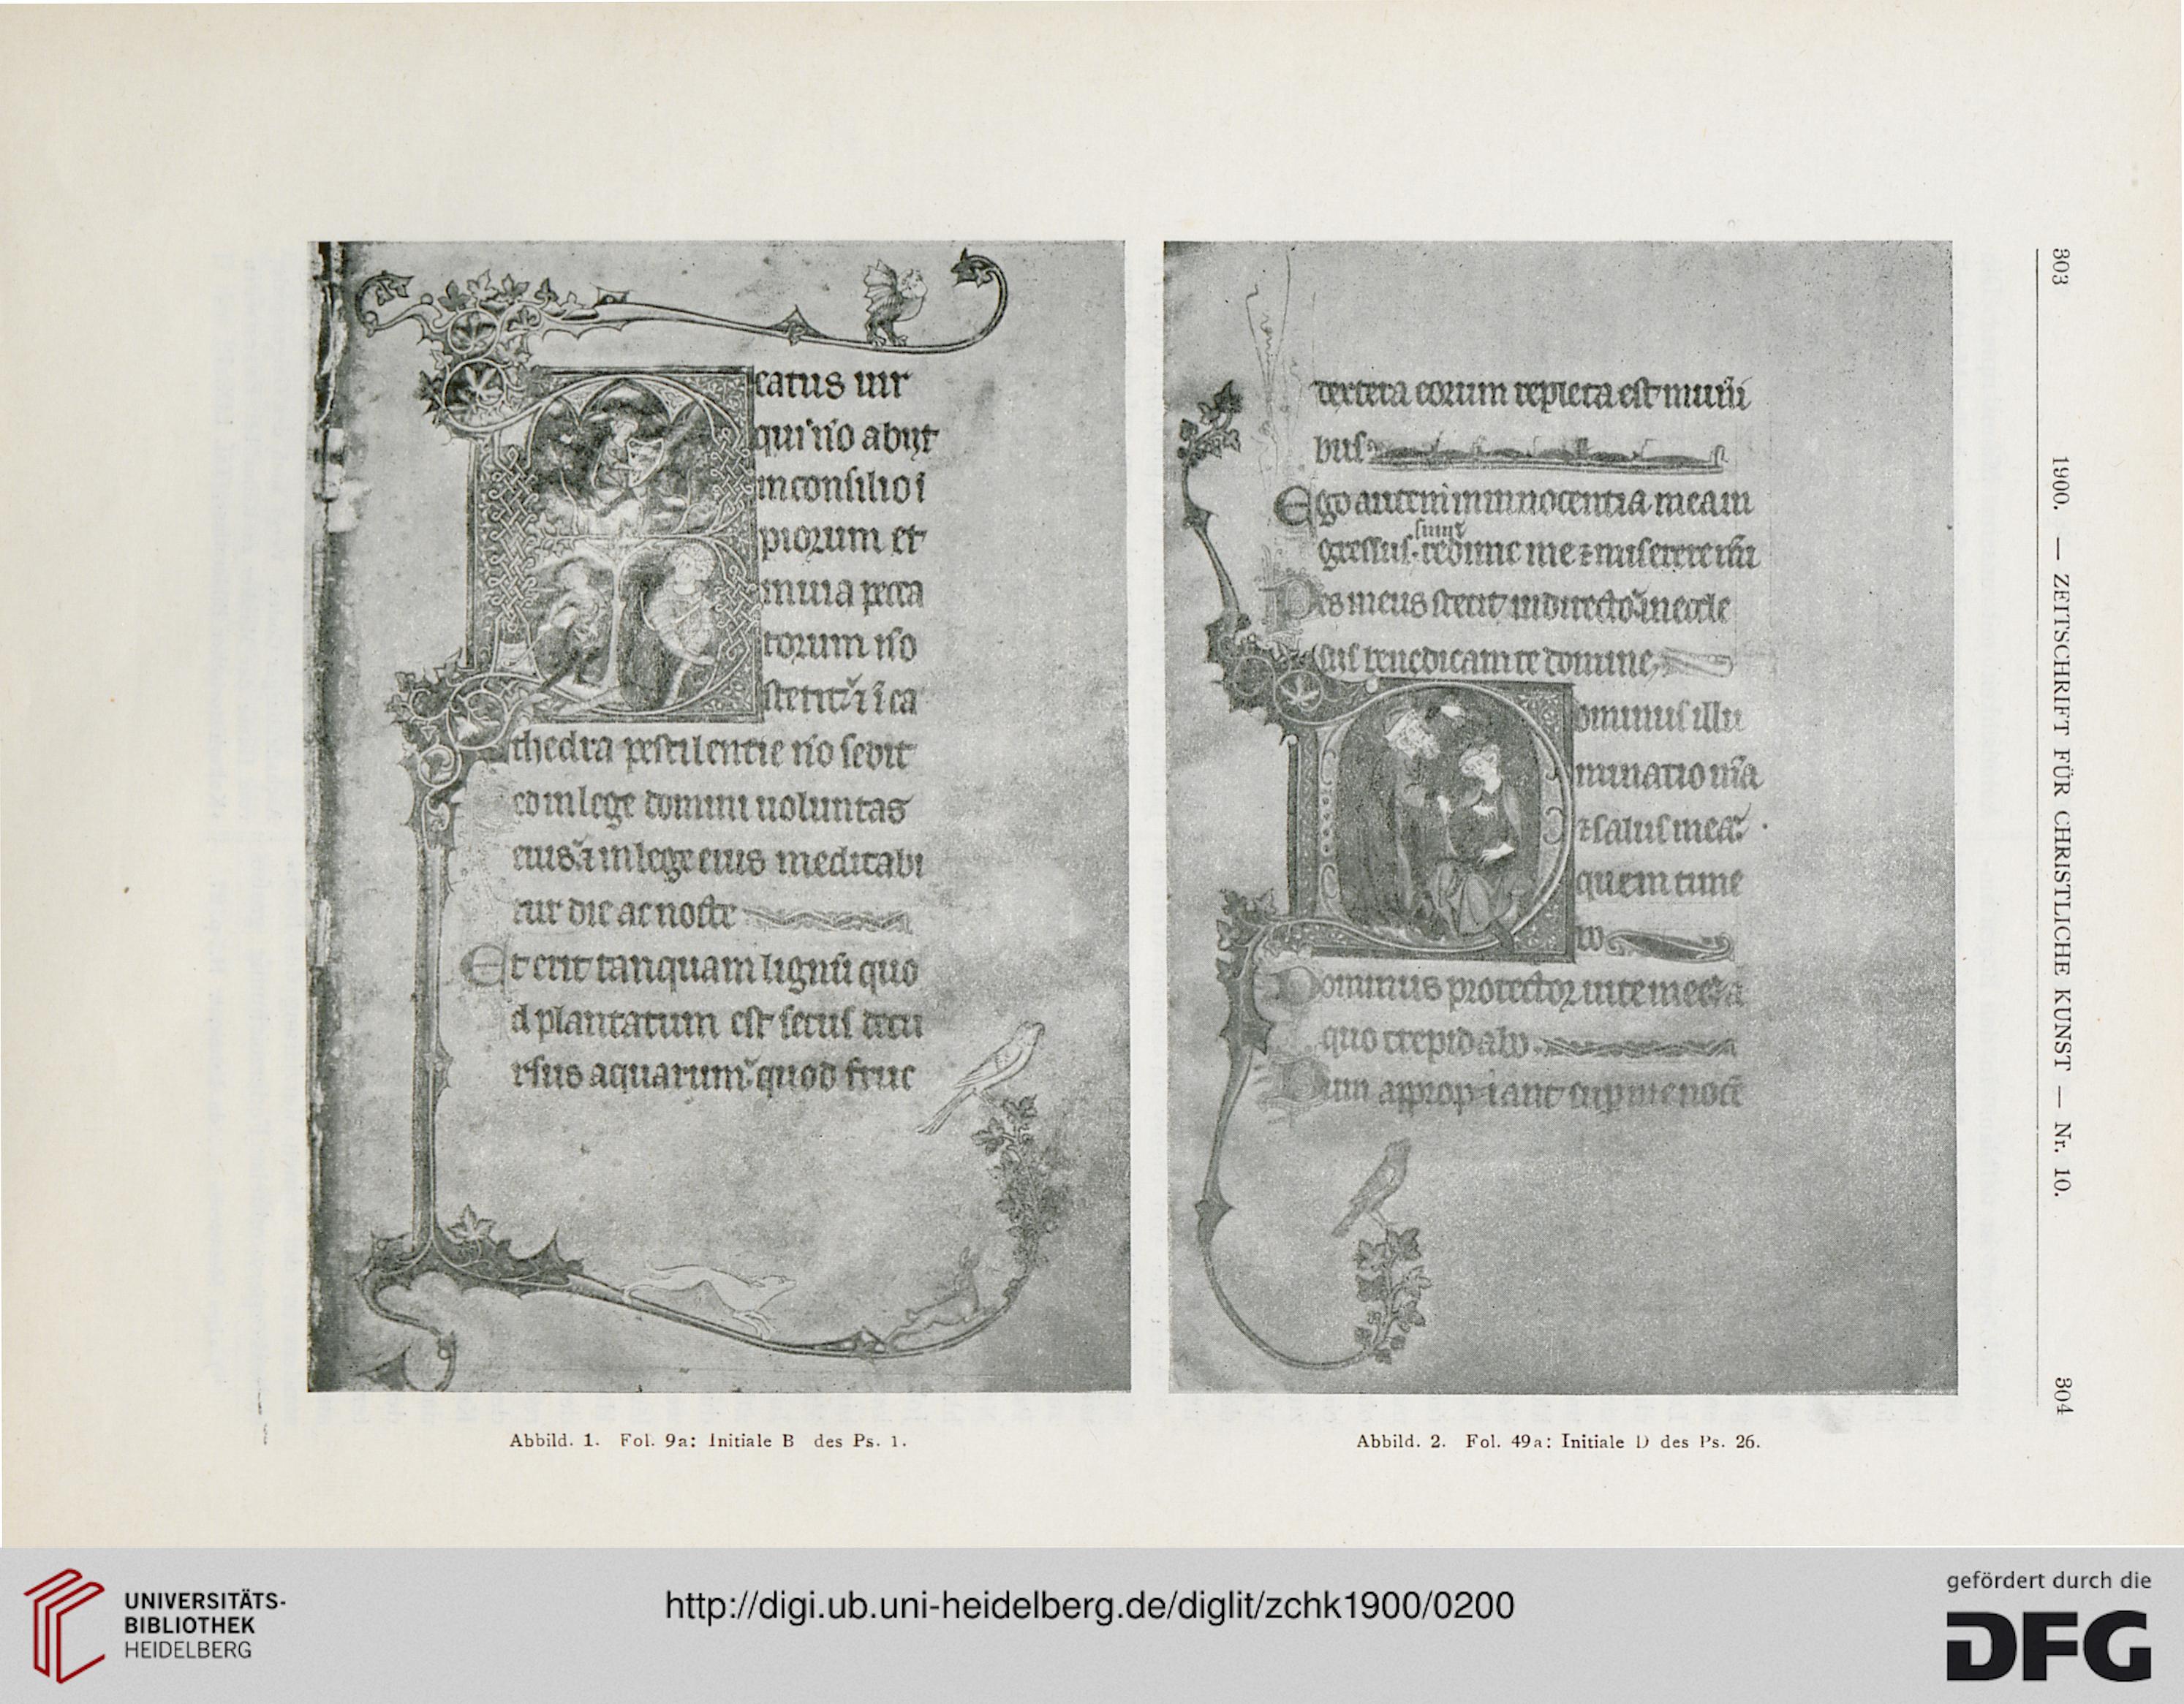 303
1900. — ZEITSCHRIFT FÜR CHRISTLICHE KUNST — Nr. 10.
304
catus uir
qui no abiit
in consilio i
piorum et
in uia pecca
torum no
stetit i ca
thedra pestilentie no sedit
ed in lege domini uoluntas
eius in lege eius meditabi
tur die ac nocte
Et erit tanquam lignū quo
d plantatum est secus decu
rsus aquarum quod fruc
Abbild. 1. Fol. 9a: Initiale B des Ps. 1.
dextera eorum repleta est muni
bus
Ego autem in innocentia mea in
gressus sum redime me et miserere
Pes meus stetit in directo in eccle
siis benedicam te domine
ominus illu
minatio mea
et salus mea
quem time
bo
Dominus protector uite mee a
quo trepidabo
Dum appropiant
Abbild. 2. Fol. 49a: Initiale D des Ps. 26.
UNIVERSITÄTS-
BIBLIOTHEK
HEIDELBERG
http://digi.ub.uni-heidelberg.de/diglit/zchk1900/0200
gefördert durch die
DFG